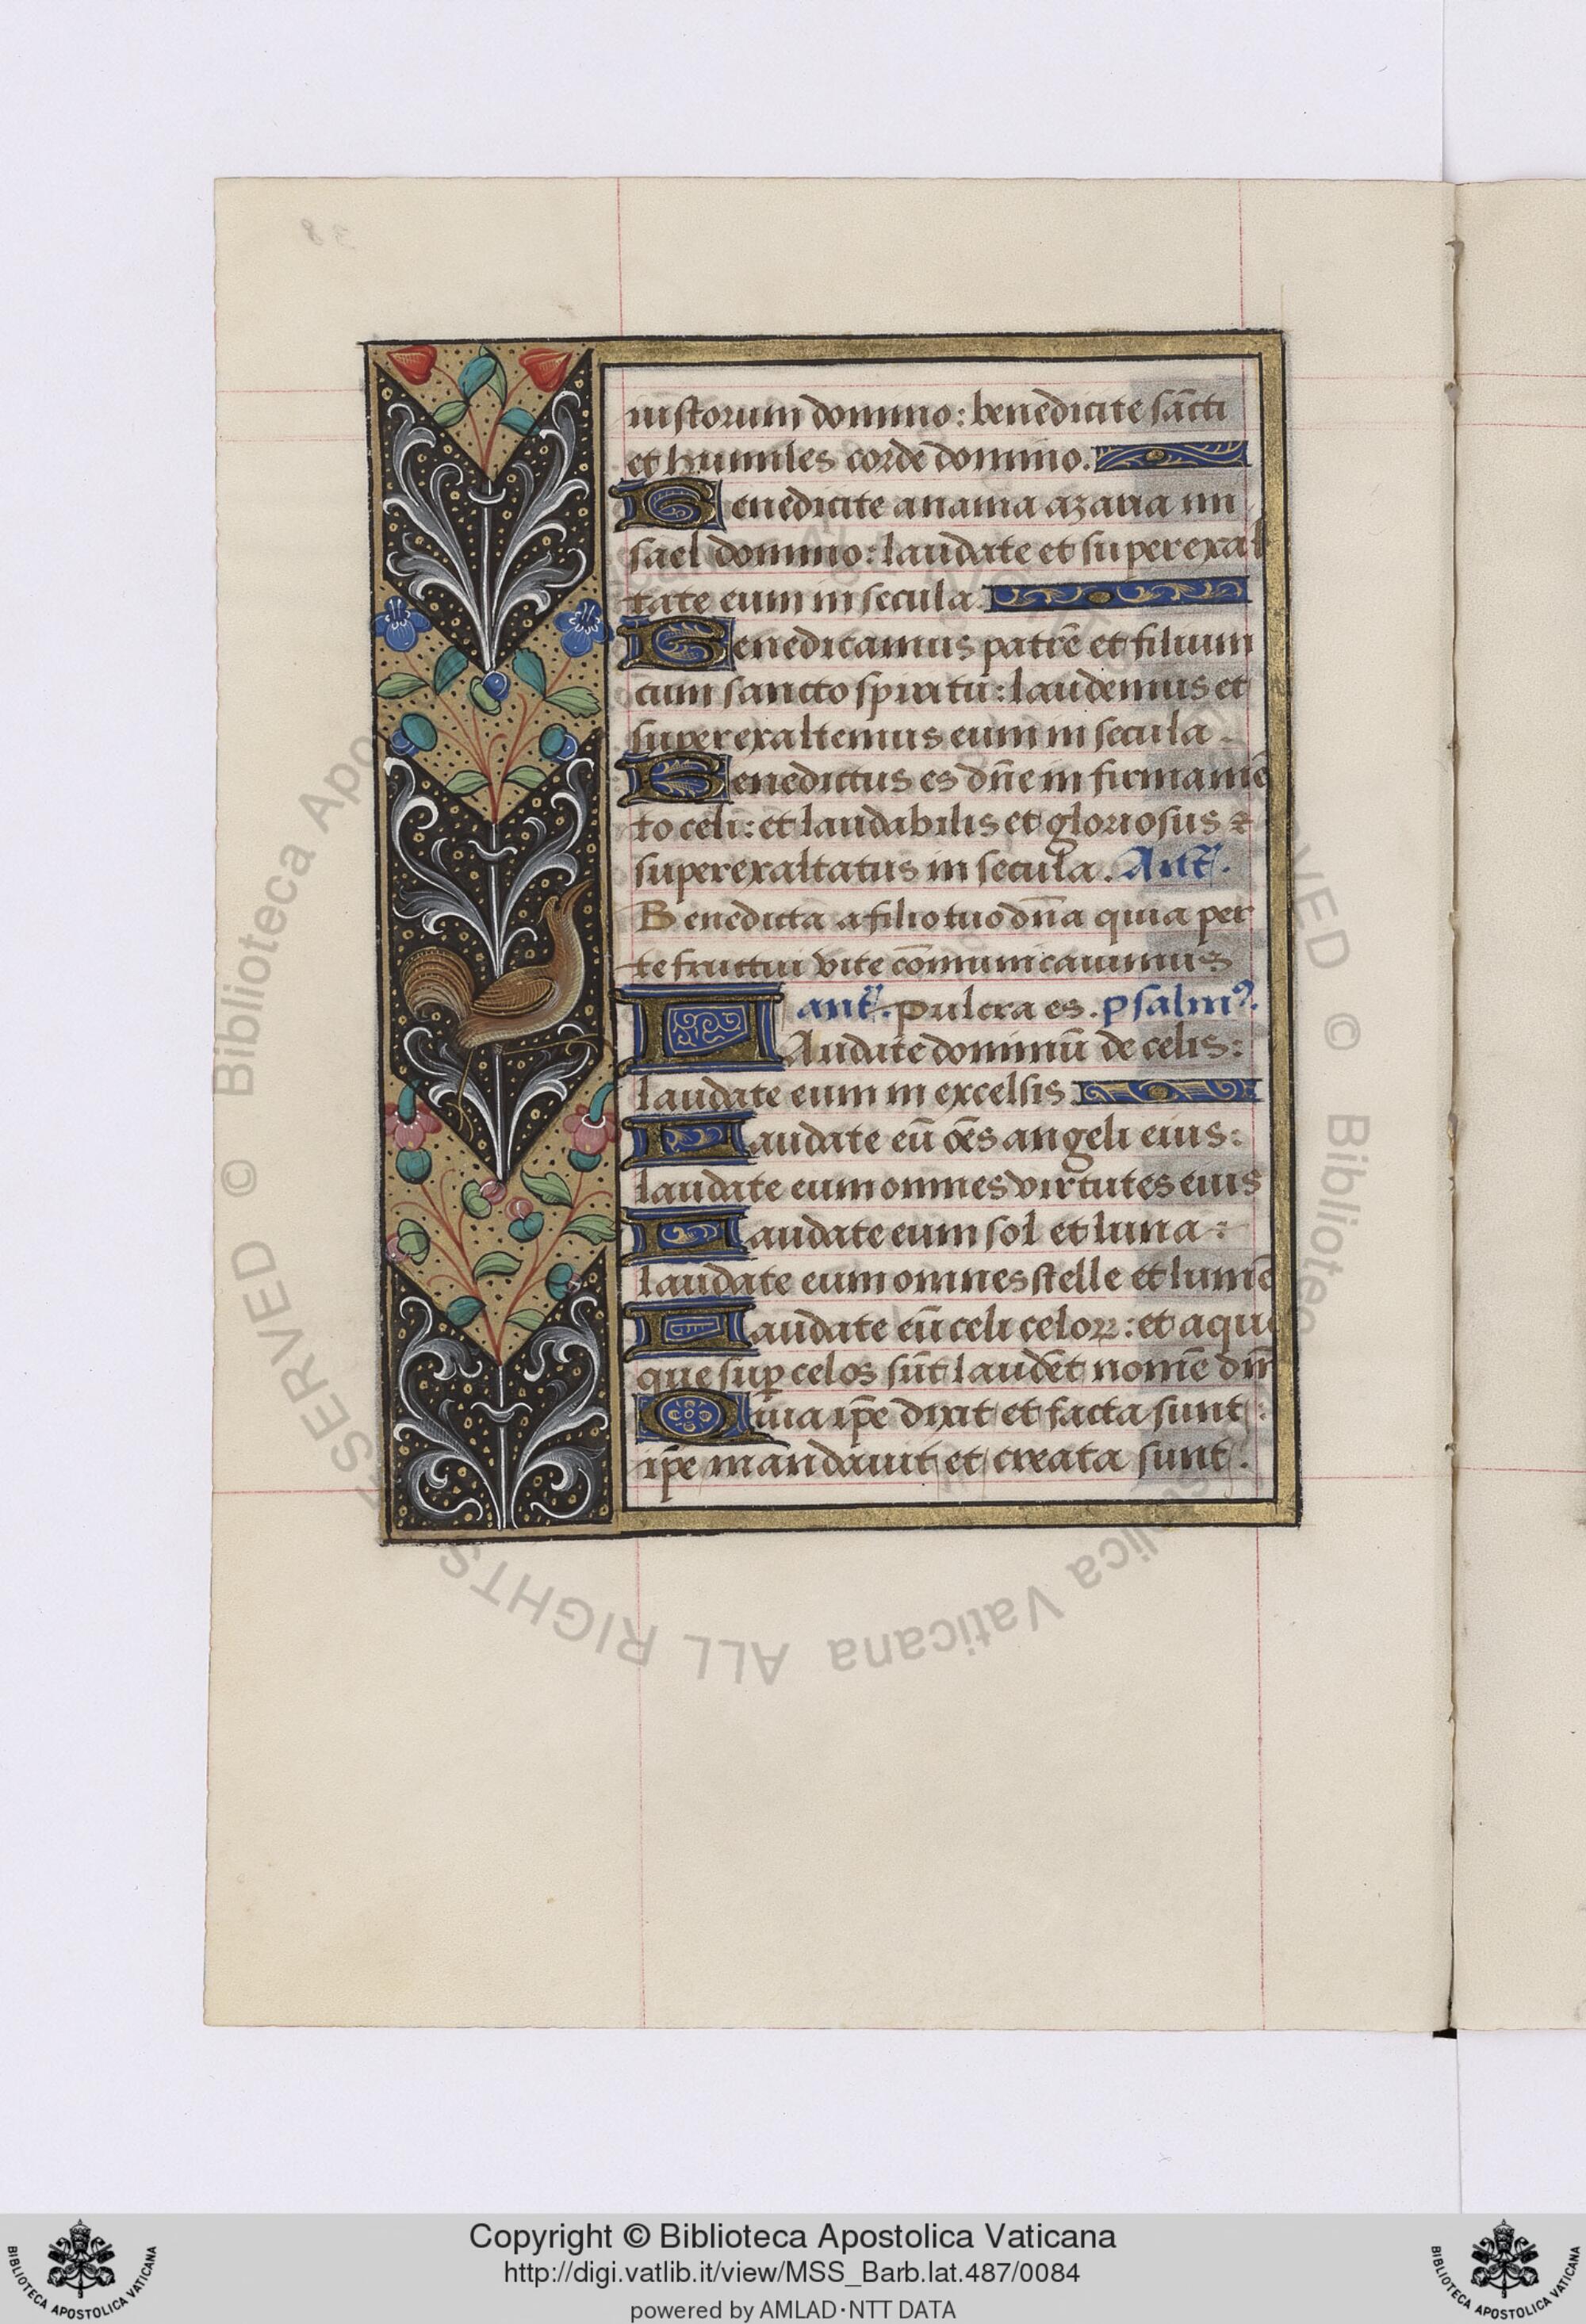 iustorum domino: benedicite sācti
et humiles corde domino.
Benedicite anania azaria mi
sael domino: laudate et superexal
tate eum in secula.
Benedicamus patrē et filium
cum sancto spiritu: laudemus et
superexaltemus eum in secula.
Benedictus es dn̄e in firmamē
to celi: et laudabilis et gloriosus ⁊
superexaltatus in secula. Ant̄.
Benedicta a filio tuo dn̄a quia per
te fructui vite cōmunicauimus
ant̄. Pulcra es. psalmꝰ.
LAudate dominū de celis:
laudate eum in excelsis.
Laudate eū oēs angeli eius:
laudate eum omnes virtutes eius
Laudate eum sol et luna:
laudate eum omnes stelle et lumē
Laudate eū celi celoꝝ: et aque
que suꝑ celos sūt laudēt nomē dn̄i
Quia ip̄e dixit et facta sunt:
ip̄e mandauit et creata sunt.
38
© Biblioteca Apostolica Vaticana ALL RIGHTS RESERVED
Copyright © Biblioteca Apostolica Vaticana
http://digi.vatlib.it/view/MSS_Barb.lat.487/0084
powered by AMLAD·NTT DATA
BIBLIOTECA APOSTOLICA VATICANA
BIBLIOTECA APOSTOLICA VATICANA